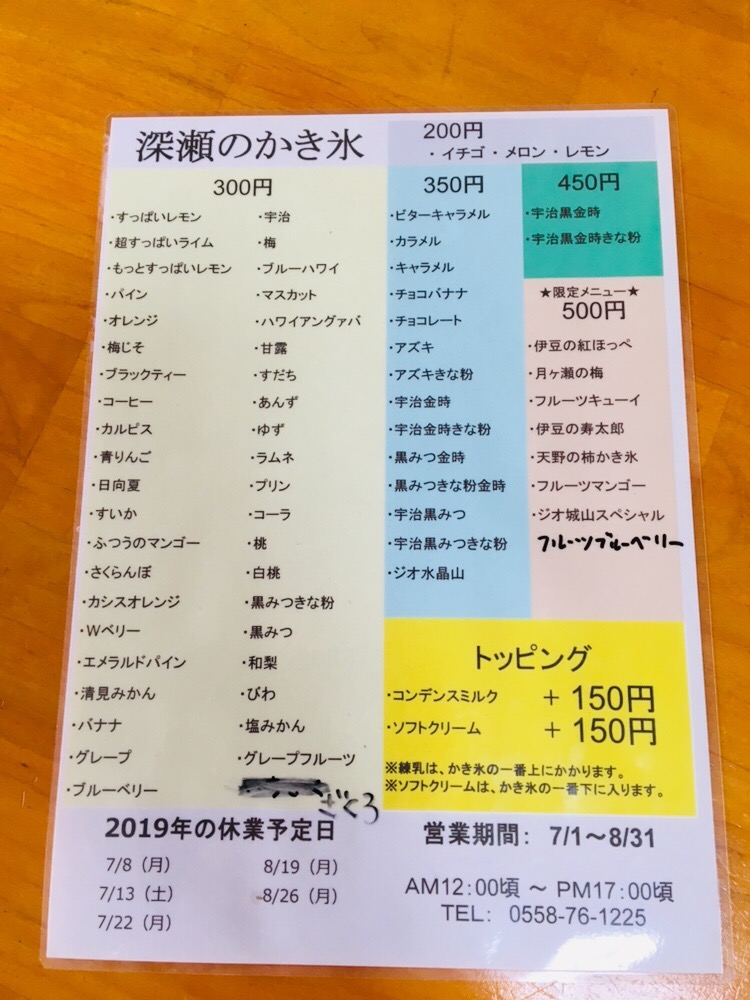 深瀬のかき氷
200円
・イチゴ・メロン・レモン
300円
・すっぱいレモン
・超すっぱいライム
・もっとすっぱいレモン
・パイン
・オレンジ
・梅じそ
・ブラックティー
・コーヒー
・カルピス
・青りんご
・日向夏
・すいか
・ふつうのマンゴー
・さくらんぼ
・カシスオレンジ
・Wベリー
・エメラルドパイン
・清見みかん
・バナナ
・グレープ
・ブルーベリー
・宇治
・梅
・ブルーハワイ
・マスカット
・ハワイアングァバ
・甘露
・すだち
・あんず
・ゆず
・ラムネ
・プリン
・コーラ
・桃
・白桃
・黒みつきな粉
・黒みつ
・和梨
・びわ
・塩みかん
・グレープフルーツ
ざくろ
350円
・ビターキャラメル
・カラメル
・キャラメル
・チョコバナナ
・チョコレート
・アズキ
・アズキきな粉
・宇治金時
・宇治金時きな粉
・黒みつ金時
・黒みつきな粉金時
・宇治黒みつ
・宇治黒みつきな粉
・ジオ水晶山
450円
・宇治黒金時
・宇治黒金時きな粉
★限定メニュー★
500円
・伊豆の紅ほっぺ
・月ヶ瀬の梅
・フルーツキューイ
・伊豆の寿太郎
・天野の柿かき氷
・フルーツマンゴー
・ジオ城山スペシャル
フルーツブルーベリー
トッピング
・コンデンスミルク ＋150円
・ソフトクリーム ＋150円
※練乳は、かき氷の一番上にかかります。
※ソフトクリームは、かき氷の一番下に入ります。
2019年の休業予定日
7/8（月）
7/13（土）
7/22（月）
8/19（月）
8/26（月）
営業期間： 7/1～8/31
AM12:00頃 ～ PM17:00頃
TEL： 0558-76-1225